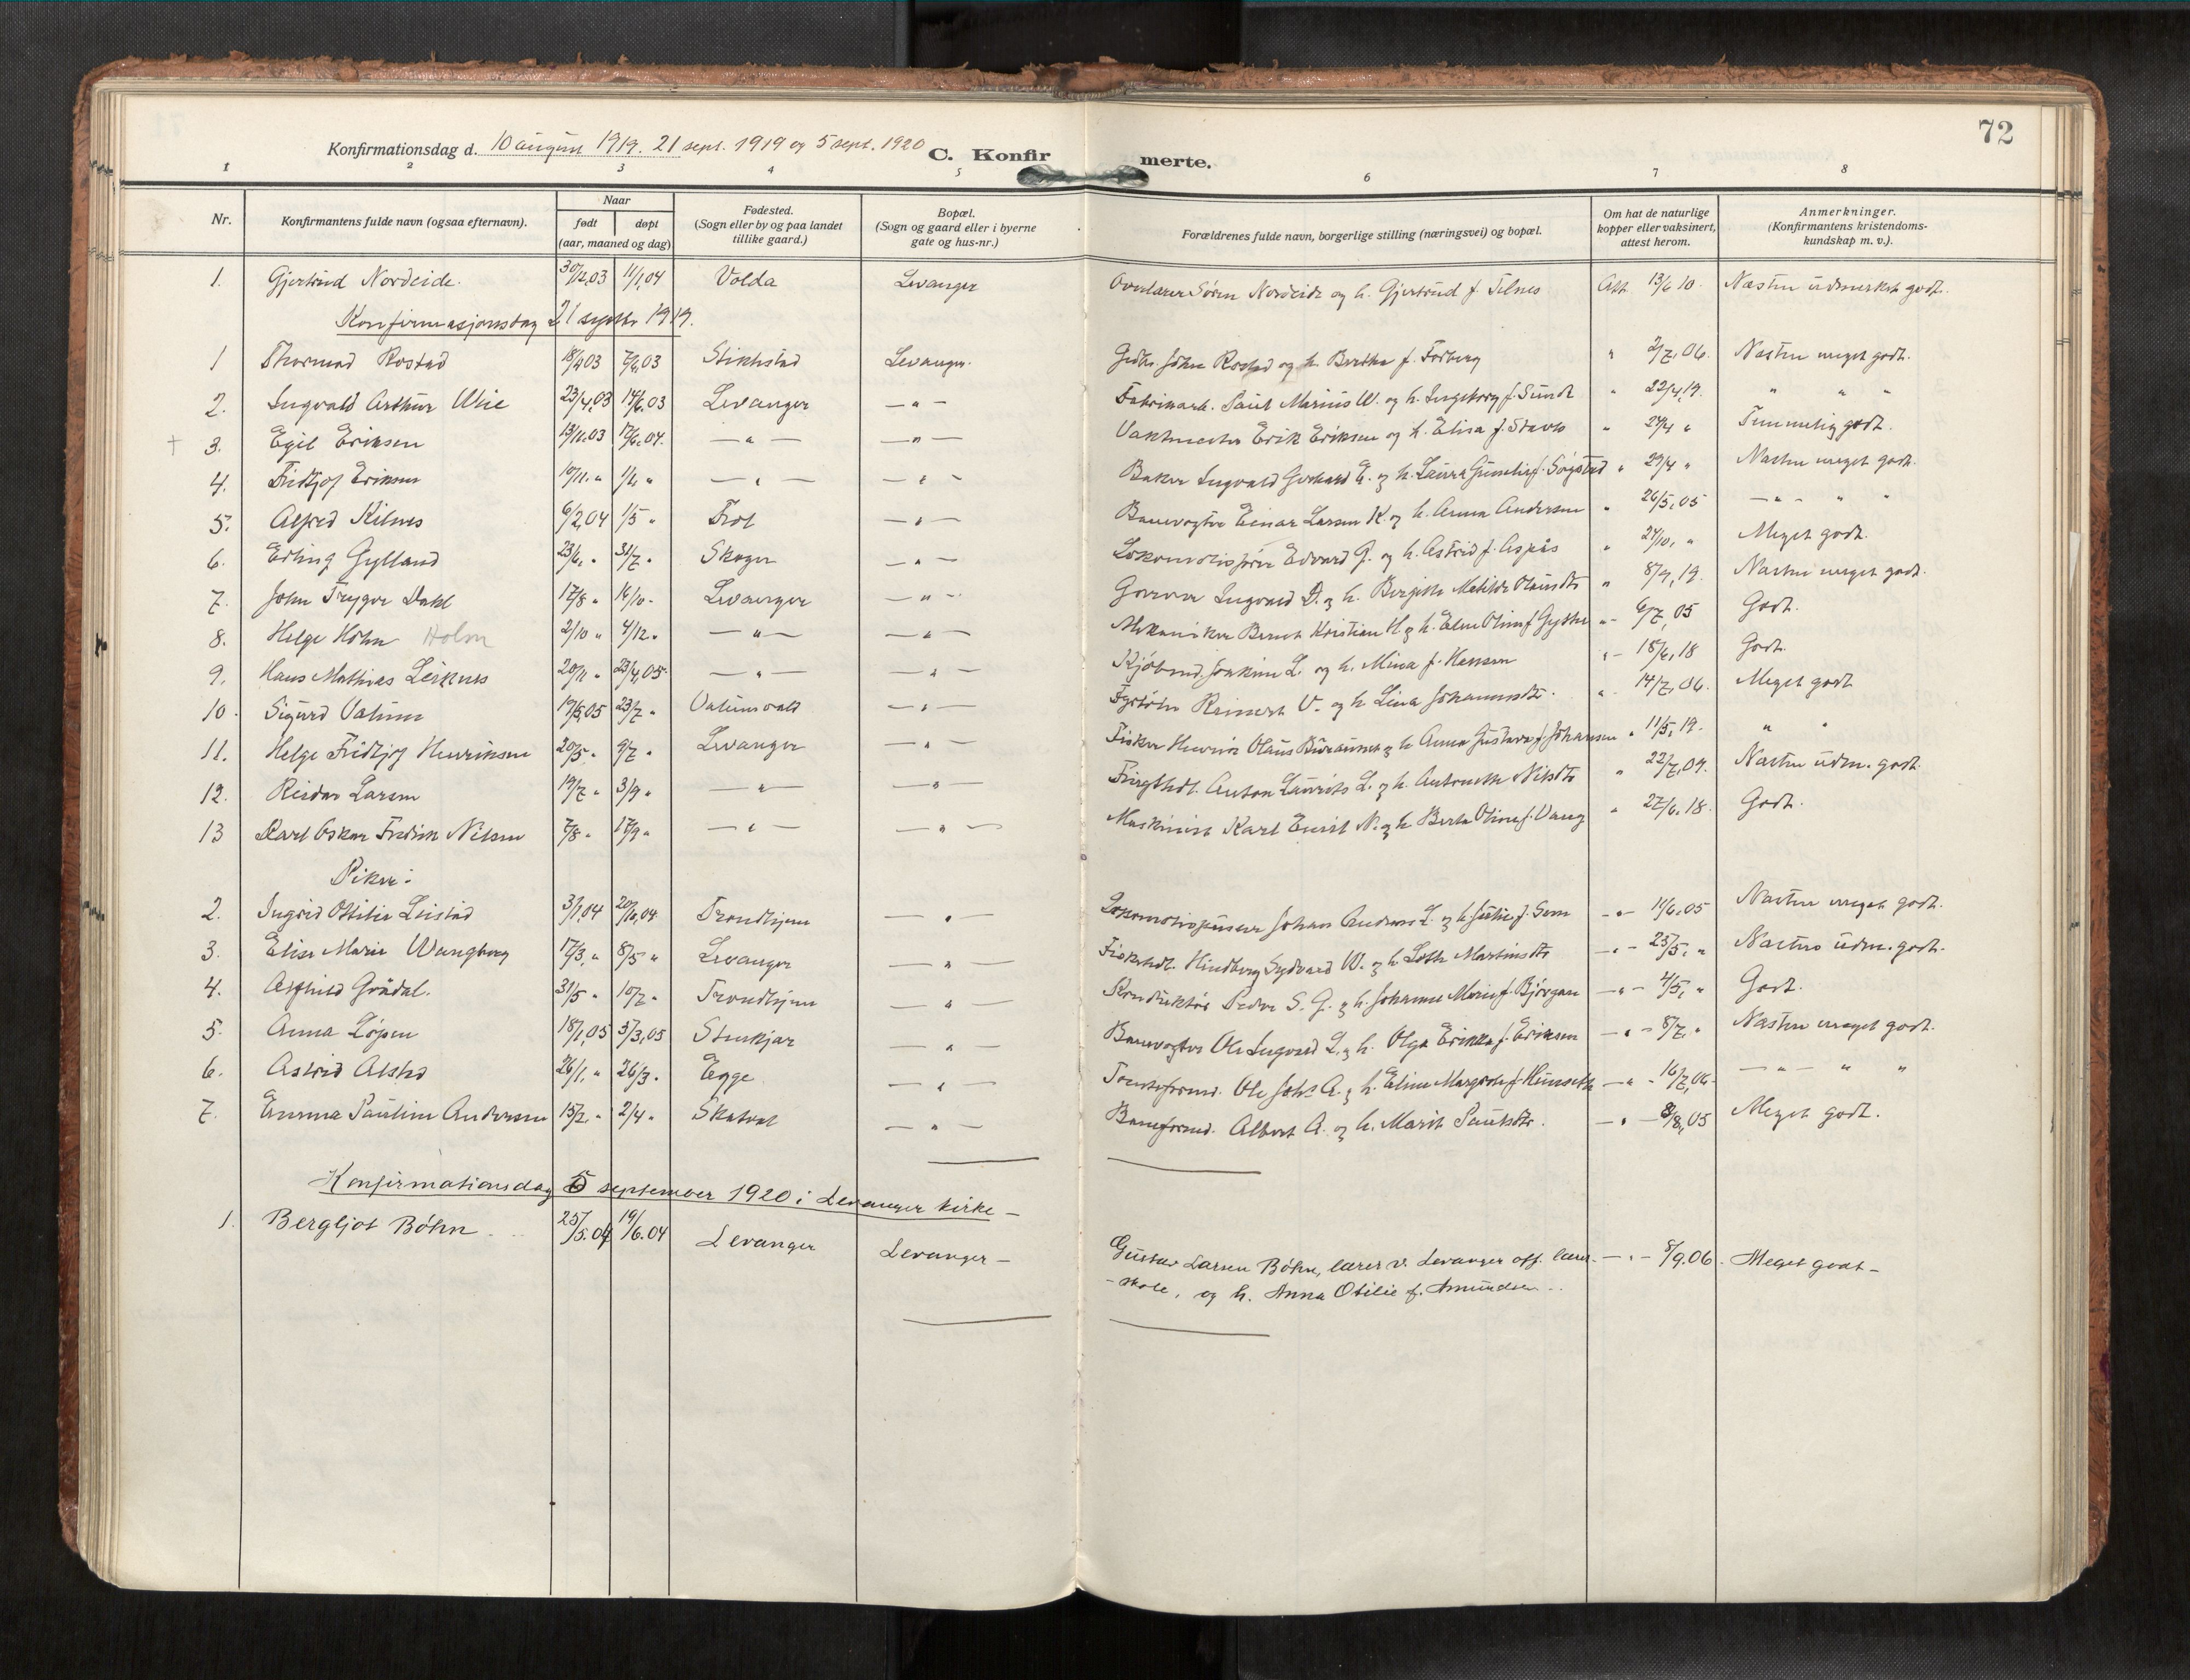 72
Konfirmationsdag d. 10 august 1919. 21 sept. 1919 og 5 sept. 1920 C. Konfirmerte.
1 2 3 4 5 6 7 8
Nr. Konfirmantens fulde navn (ogsaa efternavn). Naar født døpt (aar, maaned og dag) Fødested. (Sogn eller by og paa landet tillike gaard.) Bopæl. (Sogn og gaard eller i byerne gate og hus-nr.) Forældrenes fulde navn, borgerlige stilling (næringsvei) og bopæl. Om hat de naturlige kopper eller vaksinert, attest herom. Anmerkninger. (Konfirmantens kristendomskundskap m. v.).
1. Gjertrud Nordeide. 30/12,03 11/1,04 Volda Levanger Overlærer Søren Nordeide og h. Gjertrud f. Att. 13/6 10. Næsten udmerket godt.
Konfirmasjonsdag 21 septbr 1919.
1 Thormod Rostad 18/4 03 7/6,03 Stiklestad Levanger. Johan Rostad og h. Berthe f. Forberg " 2/7,06. Næsten meget godt.
2. Ingvald Arthur Wiie 23/4,03 14/6,03 Levanger — " — Fabrikarb. Paul Marius W. og h. Ingeborg f. Sundt " 22/4,19. " " "
3. Egil Eriksen 13/11.03 12/6.04. — " — — " — Vaktmester Erik Eriksen og h. Elisa f. " 24/4 " Temmelig godt.
4. Fridtjof Eriksen 10/11. " 1/1, " — " — — " — Baker Ingvald Gerhard E. og h. Laura f. Søgstad " 29/4 " Næsten meget godt.
5. Alfred Kilnes 6/2,04 1/5 " Frol — " — Banevogter Einar Larsen K. og h. Anna Andersen " 26/5,05 — " — " "
6. Erling Gylland 23/6, " 31/7 " Skoger — " — Edvard G. og h. Astrid f. Aspås " 24/10, " Meget godt.
7. John Trygve Dahl 17/8 " 16/10 - Levanger — " — Garver Ingvald D. og h. Bergitte Matilde " 8/9,19. Næsten meget godt.
8. Helge Höhn Holm 2/10 " 4/12 " — " — — " — Mekaniker Bernt Kristian H. og h. Olina f. " - 6/7, 05 Godt.
9. Hans Mathias Leiknes 20/11 " 23/4,05. — " — — " — Joakim L. og h. Mina f. Hansen " - 18/6,18 Godt.
10. Sigurd Vatum 19/5,05 23/7 " — " — Reinert V. og h. Lina Johannesdtr. " 14/7,06. Meget godt
11. Helge Fridtjof Henriksen 20/5 " 9/7 " Levanger — " — Fisker Henrik Olaus og h. Anna Gustava f. Johansen " 11/5,19. " "
12. Reidar Larsen 19/7 " 3/9 " — " — — " — Anton Laurits L. og h. Antonette Nilsdtr " 22/7,09. Næsten udm. godt.
13 Karl Oskar Fredrik Nilsen 7/8 " 17/9 " — " — — " — Maskinist Karl Emil N. og h. Berta Oline f. Vang " 27/6.18. Godt.
Piker:
2. Ingrid Ottilie Leistad 3/1,04 20/6,04 Trondhjem — " — Johan L. og h. Julie f. Sem — " — 11/6.05 Næsten meget godt.
3. Elise Marie Wangberg 17/3, " 8/5 " Levanger — " — Fiskehdl. Hindberg Sydvard W. og h. Lotte Martinsdtr — " — 25/5, " Næsten udm. godt.
4. Alfhild Grådal. 31/5 " 10/7 " Trondhjem — " — Konduktør Peder S. G. og h. Johanne Marie f. Bjørgan — " — 4/5, " Godt.
5. Anna Løpen 18/1,05 5/3,05 Stenkjær — " — Banevogter Ole Ingvard L. og h. Olga Erikka f. Eriksen — " — 8/7, " Næsten meget godt.
6. Astrid Alstad 26/1, " 26/3 " Egge — " — Tomteformd. Ole Johs A. og h. Eline Margrete f. — " — 16/7,06. — " — " "
7. Emma Pauline Andersen 15/2. " 2/4 " Skatval — " — Baneformd. Albert A. og h. Marit Paulsdtr. — " — 8/8,05 Meget godt.
Konfirmationsdag 5 september 1920 i Levanger kirke —
1. Bergljot Bøhn 25/5.04 19/6.04 Levanger Levanger — Gustav Larsen Bøhn, lærer v. Levanger off. lærer- — " — 8/9.06. Meget godt —
- skole, og h. Anna Otilie f. Amundsen.